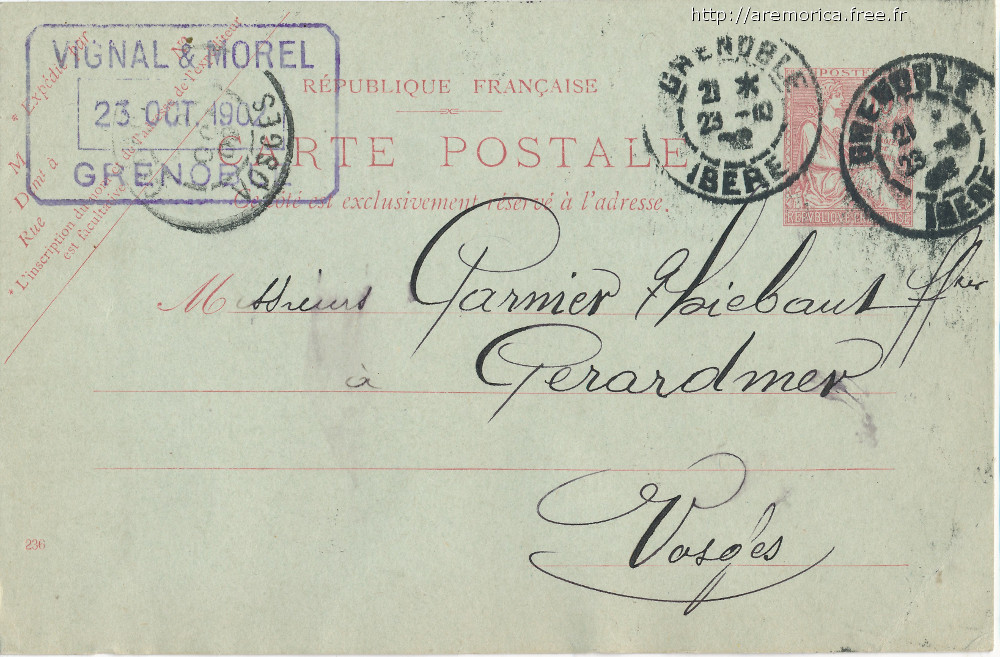 http://aremorica.free.fr
VIGNAL & MOREL
23 OCT. 1902
GRENOBLE
* Expédié par
M
Demt à
Rue
No
* L'inscription du nom et de l'adresse de l'expéditeur
est facultative
RÉPUBLIQUE FRANÇAISE
CARTE POSTALE
Ce côté est exclusivement réservé à l'adresse.
GRENOBLE
21 *
23 -10
ISÈRE
POSTES
RÉPUBLIQUE FRANÇAISE
GRENOBLE
21
23 -10
ISÈRE
VOSGES
Messieurs Garnier Thiebaut ffrer
à Gerardmer
Vosges
236